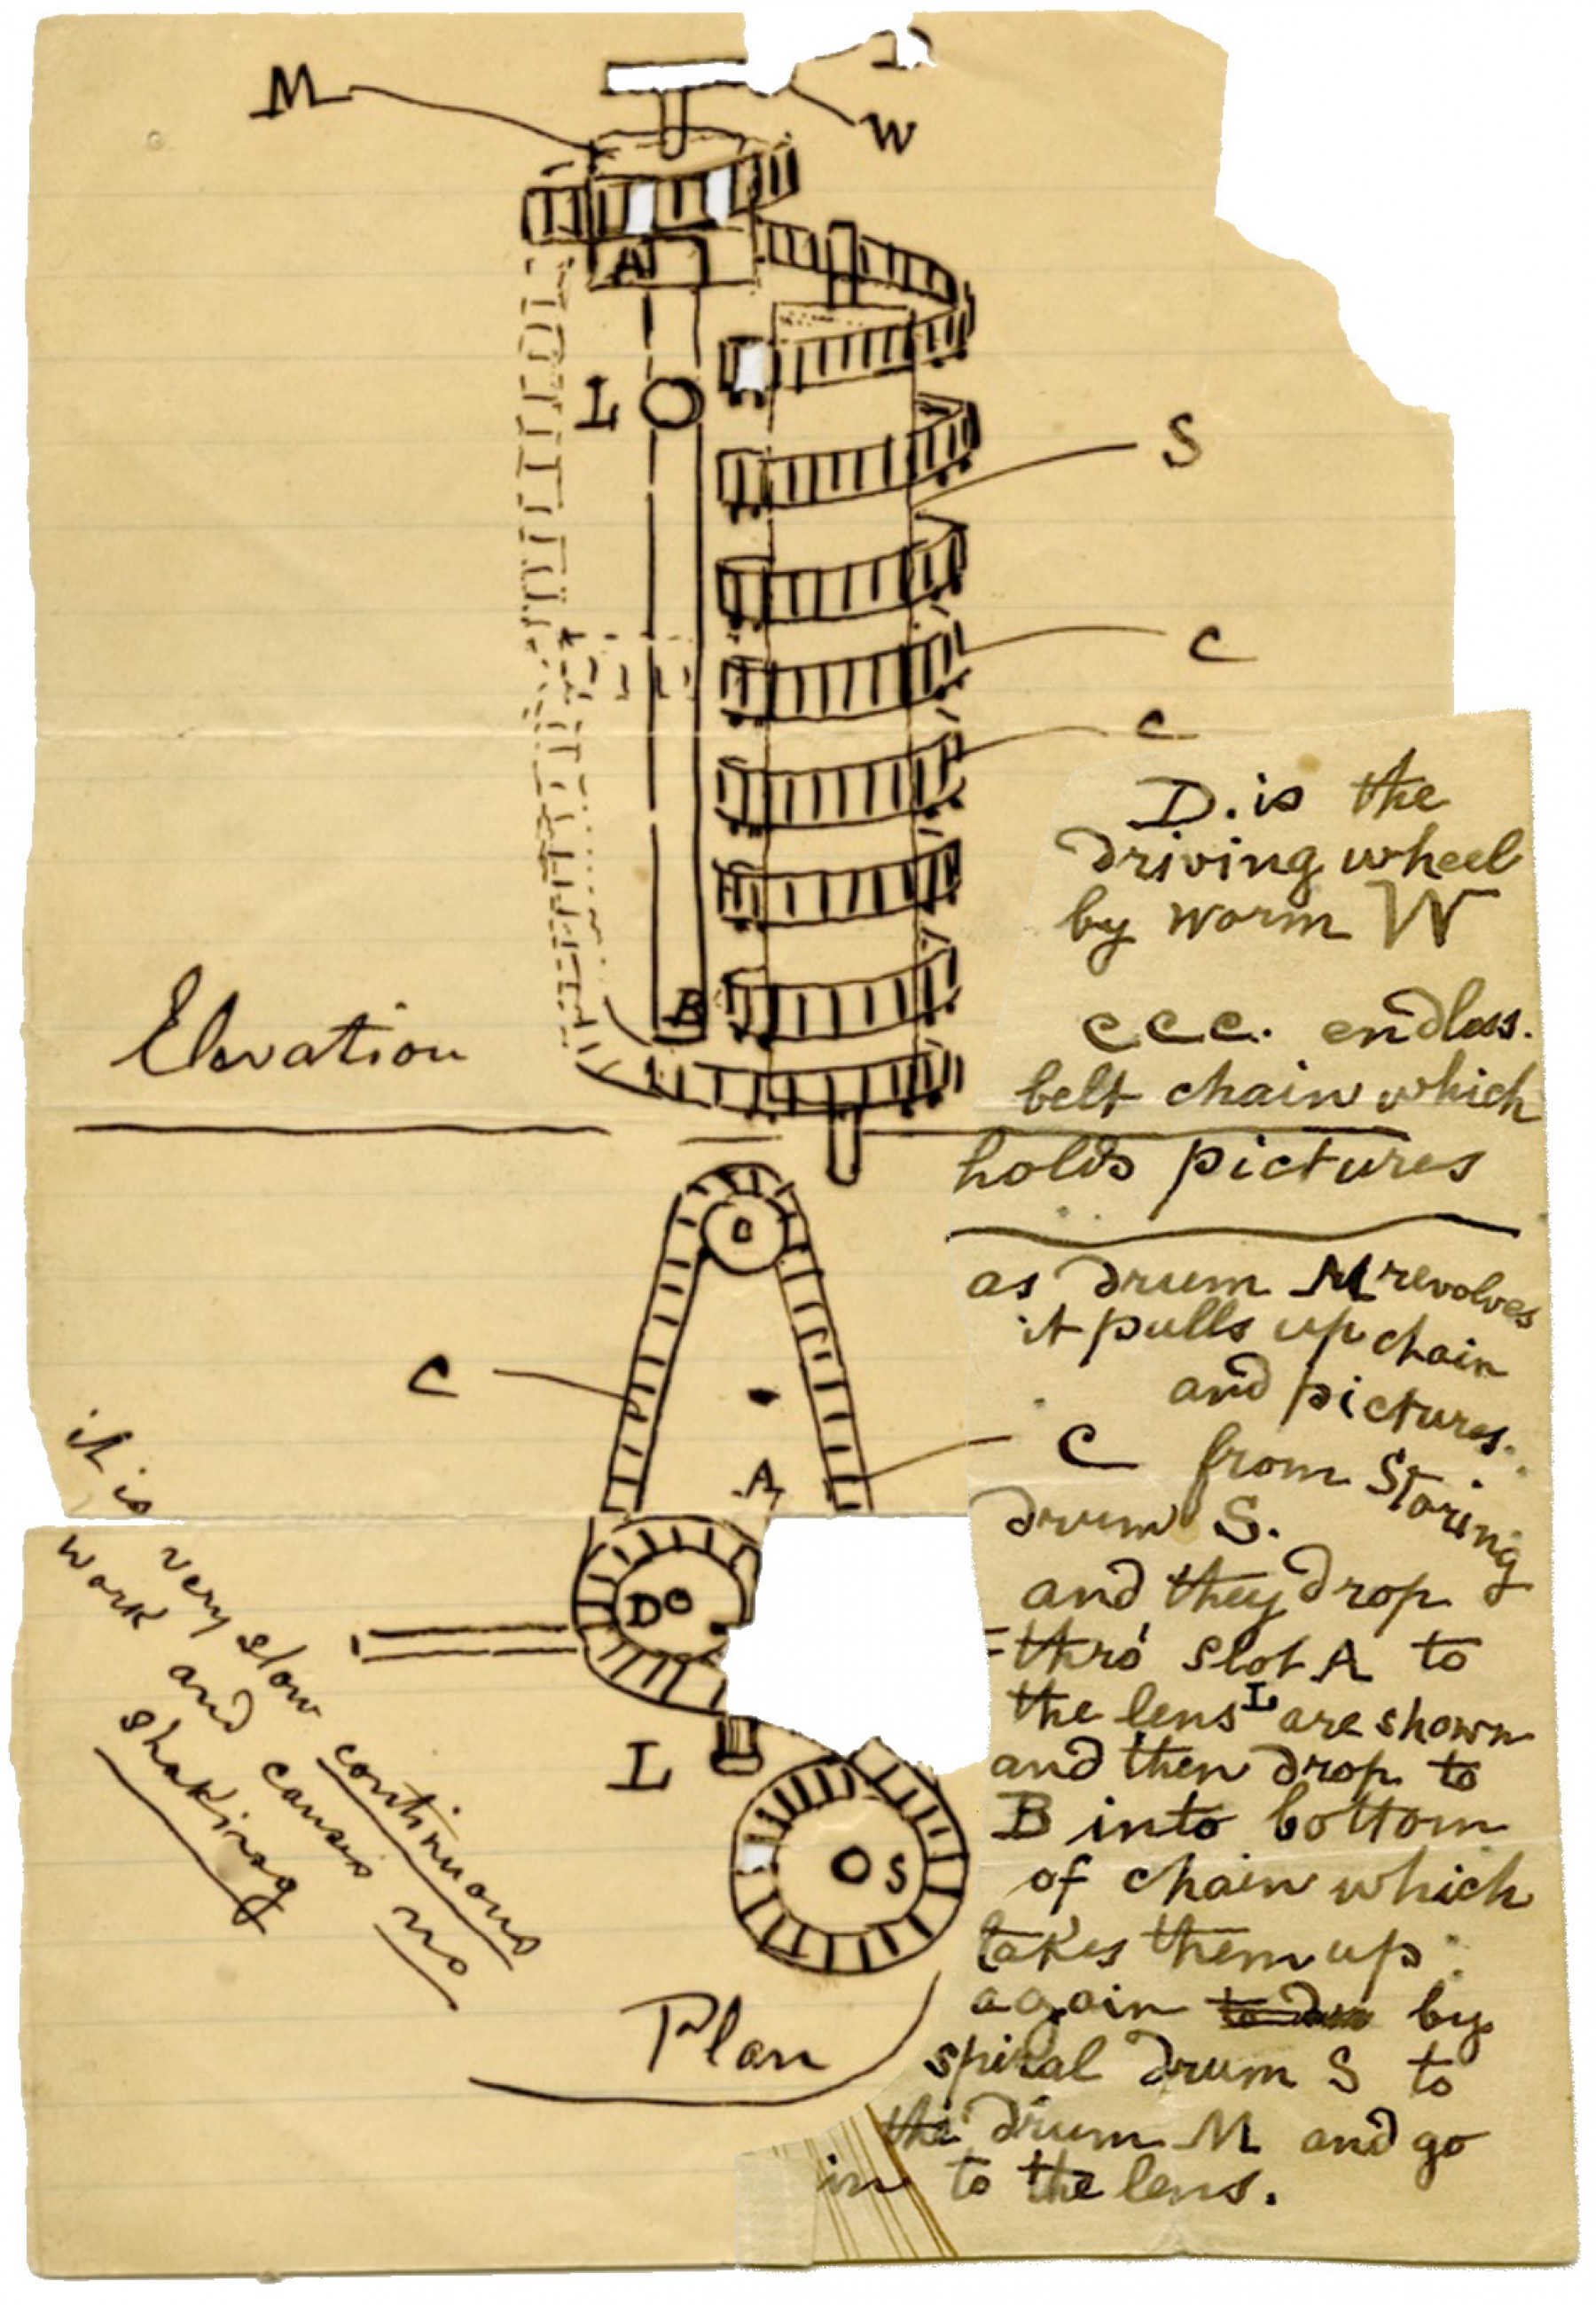 M
D
W
A
L
S
C
C
B
Elevation
D. is the
driving wheel
by worm W
c c c. endless.
belt chain which
holds pictures
as drum M revolves
it pulls up chain
and pictures.
from Storing
drum S.
and they drop
thro' slot A to
the lens L are shown
and then drop to
B into bottom
of chain which
takes them up
again by
spiral drum S to
the drum M and go
in to the lens.
C
C
A
D
L
S
Plan
it is
very slow continuous
work and causes no
shaking